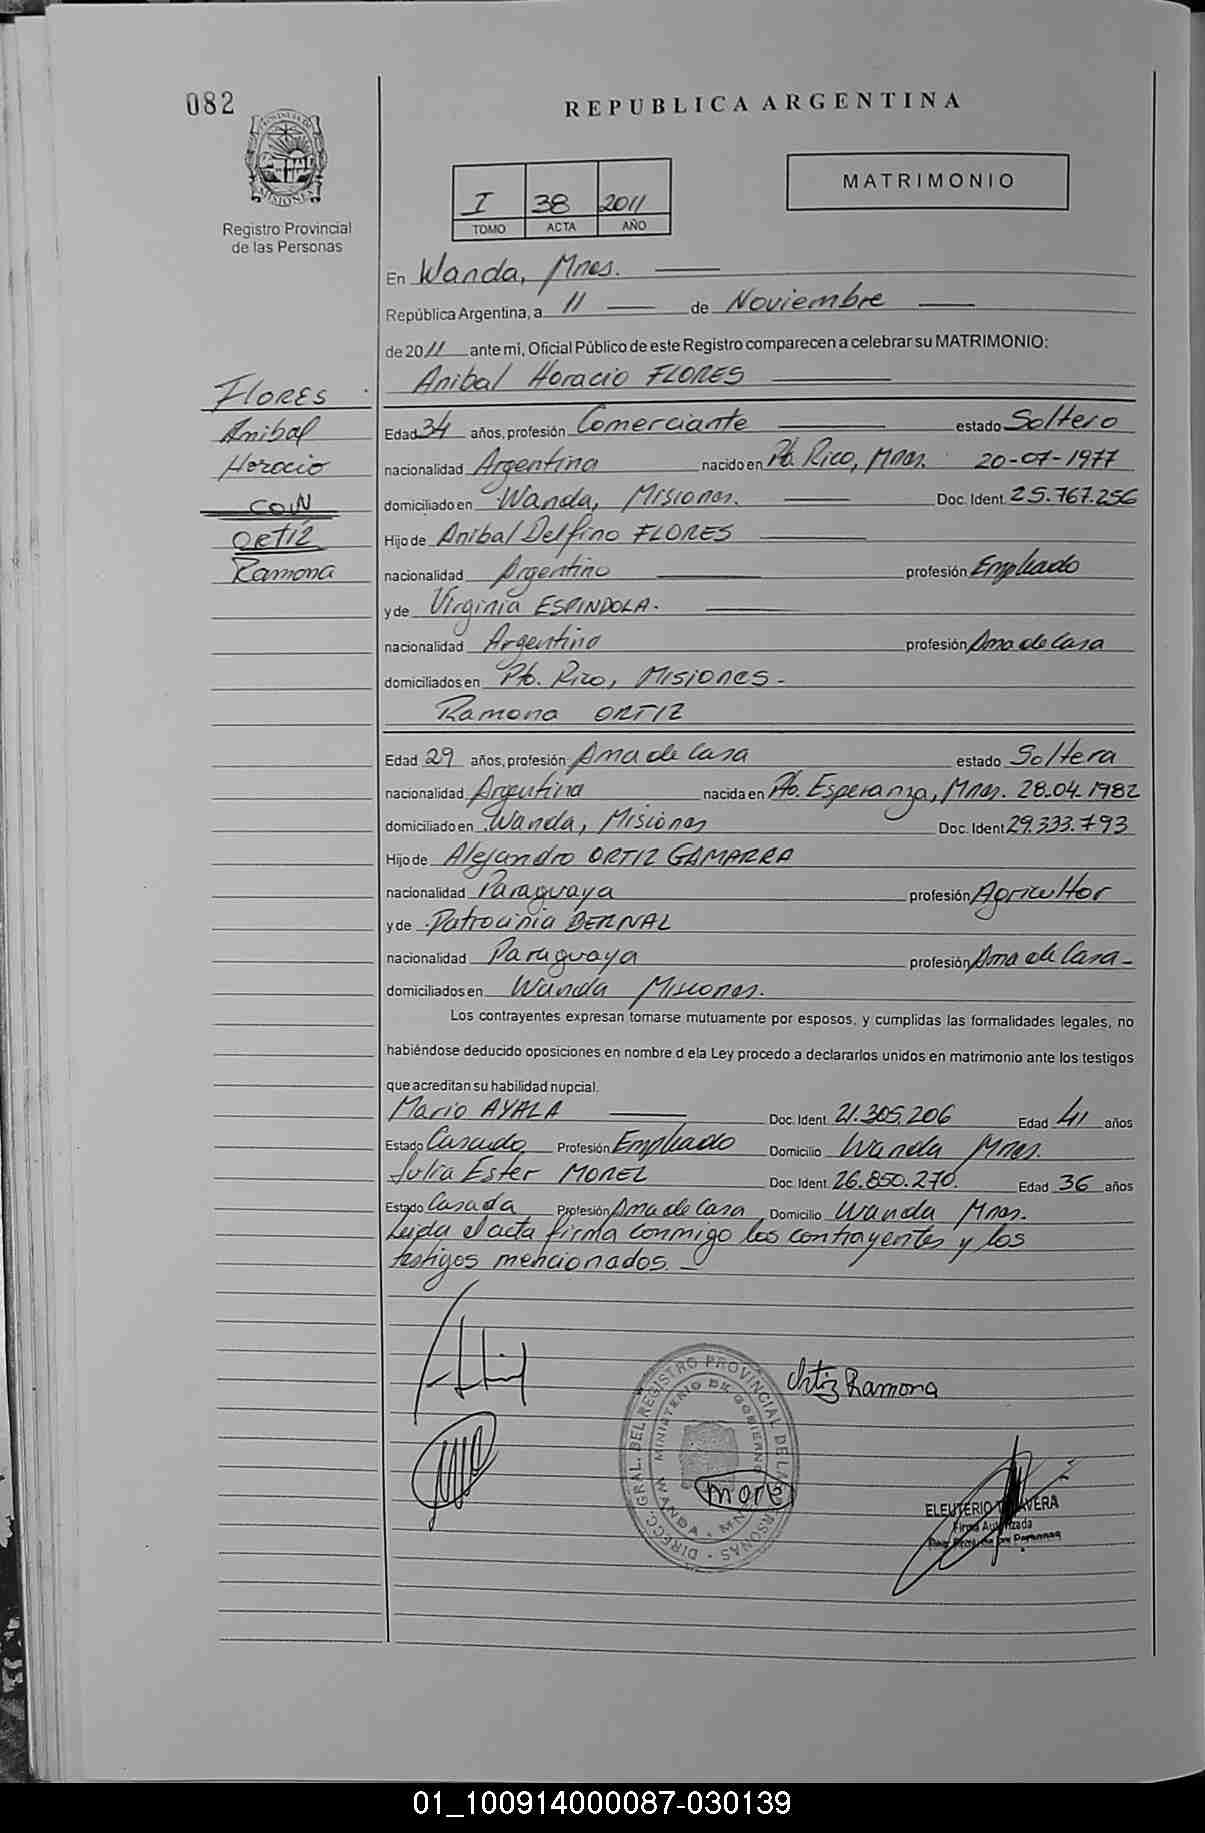 082
REPUBLICA ARGENTINA
PROVINCIA DE MISIONES
Registro Provincial
de las Personas
I 38 2011
TOMO ACTA AÑO
MATRIMONIO
En Wanda, Mnes.
República Argentina, a 11 de Noviembre
de 2011 ante mi, Oficial Público de este Registro comparecen a celebrar su MATRIMONIO:
Anibal Horacio FLORES
FLORES
Anibal
Horacio
CON
ORTIZ
Ramona
Edad 34 años, profesión Comerciante estado Soltero
nacionalidad Argentina nacido en Pto. Rico, Mnes. 20-07-1977
domiciliado en Wanda, Misiones. Doc. Ident. 25.767.256
Hijo de Anibal Delfino FLORES
nacionalidad Argentino profesión Empleado
y de Virginia ESPINDOLA.
nacionalidad Argentina profesión Ama de Casa
domiciliados en Pto. Rico, Misiones -
Ramona ORTIZ
Edad 29 años, profesión Ama de Casa estado Soltera
nacionalidad Argentina nacida en Pto. Esperanza, Mnes. 28.04.1982
domiciliado en Wanda, Misiones Doc. Ident 29.333.793
Hijo de Alejandro ORTIZ GAMARRA
nacionalidad Paraguaya profesión Agricultor
y de Patrocinia BERNAL
nacionalidad Paraguaya profesión Ama de Casa -
domiciliados en Wanda Misiones.
Los contrayentes expresan tomarse mutuamente por esposos, y cumplidas las formalidades legales, no
habiéndose deducido oposiciones en nombre d ela Ley procedo a declararlos unidos en matrimonio ante los testigos
que acreditan su habilidad nupcial.
Mario AYALA Doc. Ident. 21.305.206 Edad 41 años
Estado Casado Profesión Empleado Domicilio Wanda Mnes.
Julia Ester MOREL Doc. Ident. 26.850.270. Edad 36 años
Estado Casada Profesión Ama de Casa Domicilio Wanda Mnes.
Leida el acta firma conmigo los contrayentes y los
testigos mencionados. -
Ortiz Ramona
DIRECC. GRAL. DEL REGISTRO PROVINCIAL DE LAS PERSONAS
MINISTERIO DE GOBIERNO
WANDA - MNES
ELEUTERIO TALAVERA
Firma Autorizada
Reg. Provincial de las Personas
01_100914000087-030139